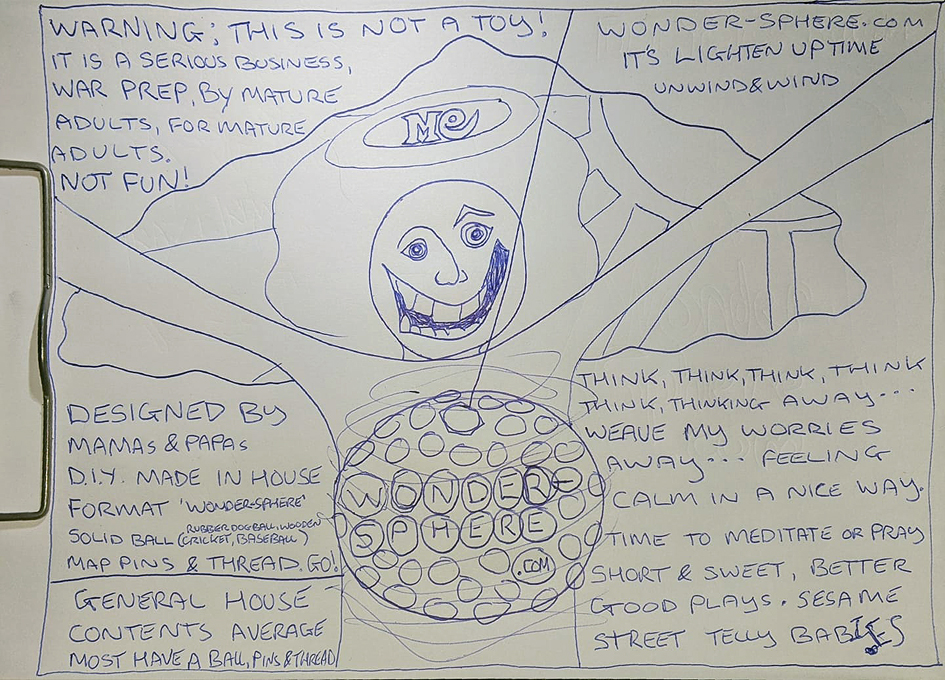 WARNING; THIS IS NOT A TOY!
IT IS A SERIOUS BUSINESS,
WAR PREP, BY MATURE
ADULTS, FOR MATURE
ADULTS.
NOT FUN!
WONDER-SPHERE.COM
IT'S LIGHTEN UP TIME
UNWIND & WIND
Me
DESIGNED BY
MAMAS & PAPAS
D.I.Y. MADE IN HOUSE
FORMAT 'WONDER-SPHERE'
SOLID BALL (RUBBER DOG BALL, WOODEN CRICKET, BASEBALL)
MAP PINS & THREAD. GO!
GENERAL HOUSE
CONTENTS AVERAGE
MOST HAVE A BALL, PINS & THREAD
WONDER-
SPHERE
.COM
THINK, THINK, THINK, THINK
THINK, THINKING AWAY...
WEAVE MY WORRIES
AWAY... FEELING
CALM IN A NICE WAY.
TIME TO MEDITATE OR PRAY
SHORT & SWEET, BETTER
GOOD PLAYS. SESAME
STREET TELLY BABIES